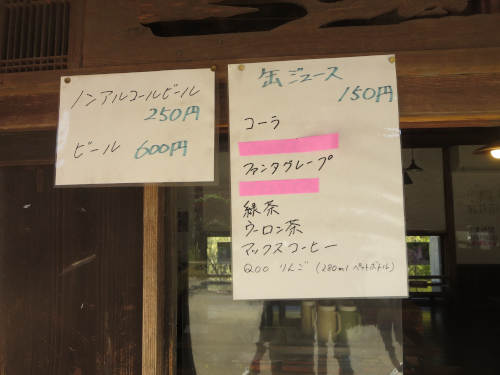 ノンアルコールビール
250円
ビール 600円
缶ジュース
150円
コーラ
ファンタグレープ
緑茶
ウーロン茶
マックスコーヒー
Qoo りんご (280ml ペットボトル)